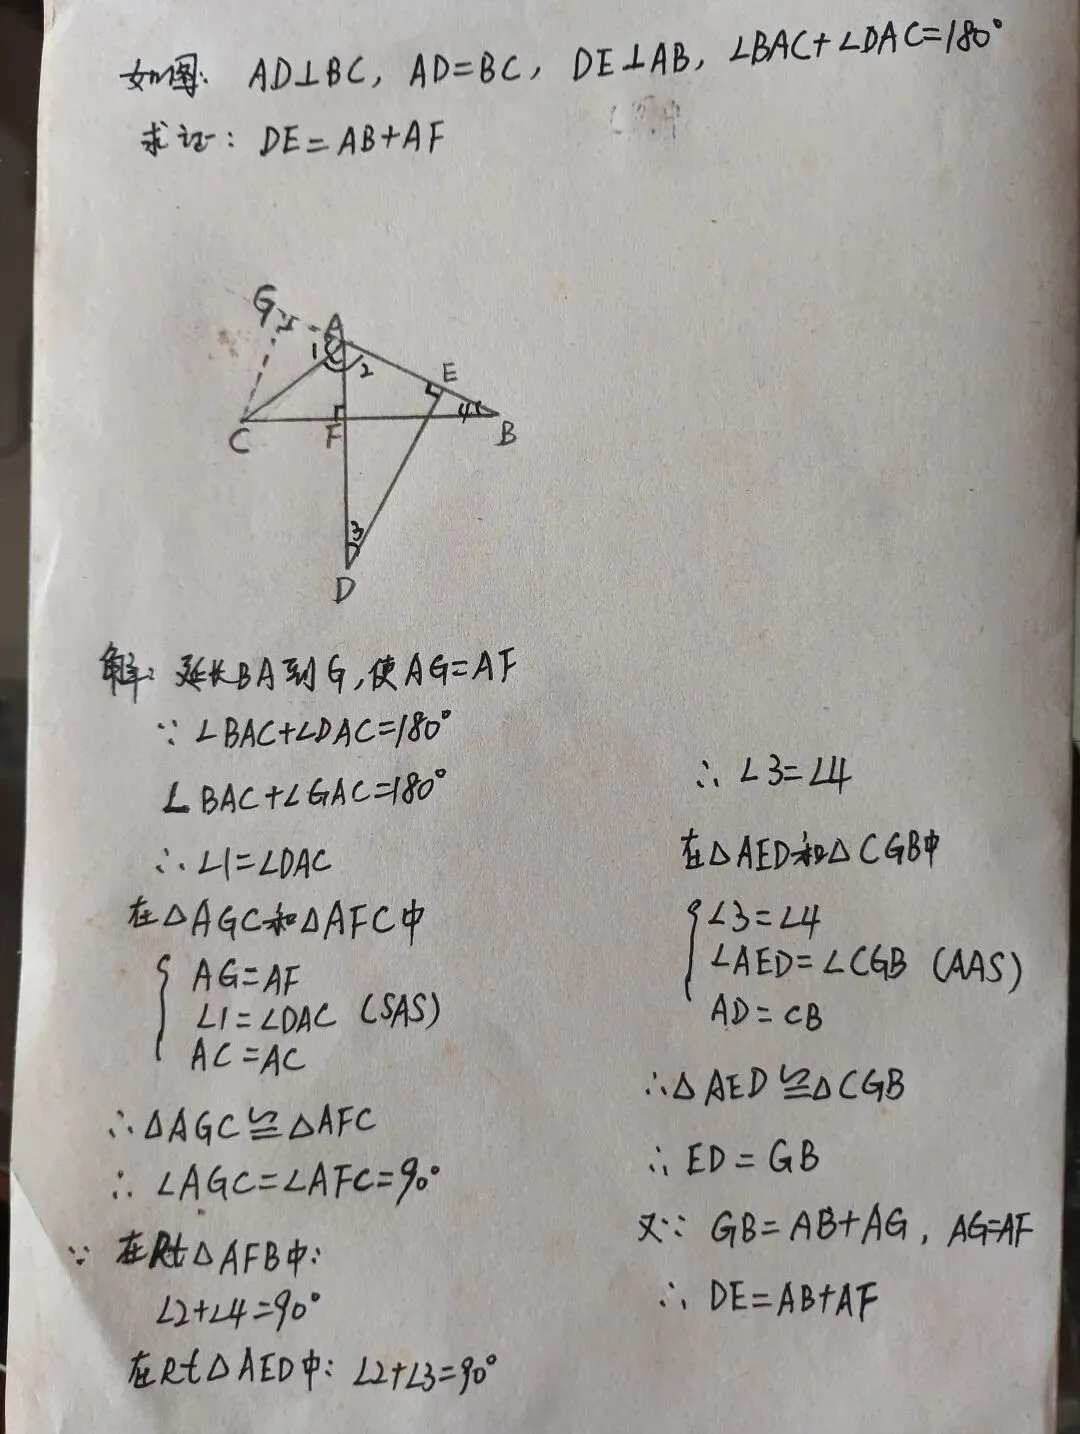 如图: AD⊥BC, AD=BC, DE⊥AB, ∠BAC+∠DAC=180°
求证: DE=AB+AF
G
A
1
2
E
4
C
F
B
3
D
解: 延长BA到G,使AG=AF
∵ ∠BAC+∠DAC=180°
∠BAC+∠GAC=180°
∴ ∠1=∠DAC
在△AGC和△AFC中
AG=AF
∠1=∠DAC (SAS)
AC=AC
∴△AGC≌△AFC
∴ ∠AGC=∠AFC=90°
∵ 在Rt△AFB中:
∠2+∠4=90°
在Rt△AED中: ∠2+∠3=90°
∴ ∠3=∠4
在△AED和△CGB中
∠3=∠4
∠AED=∠CGB (AAS)
AD=CB
∴△AED≌△CGB
∴ ED=GB
又∵ GB=AB+AG, AG=AF
∴ DE=AB+AF